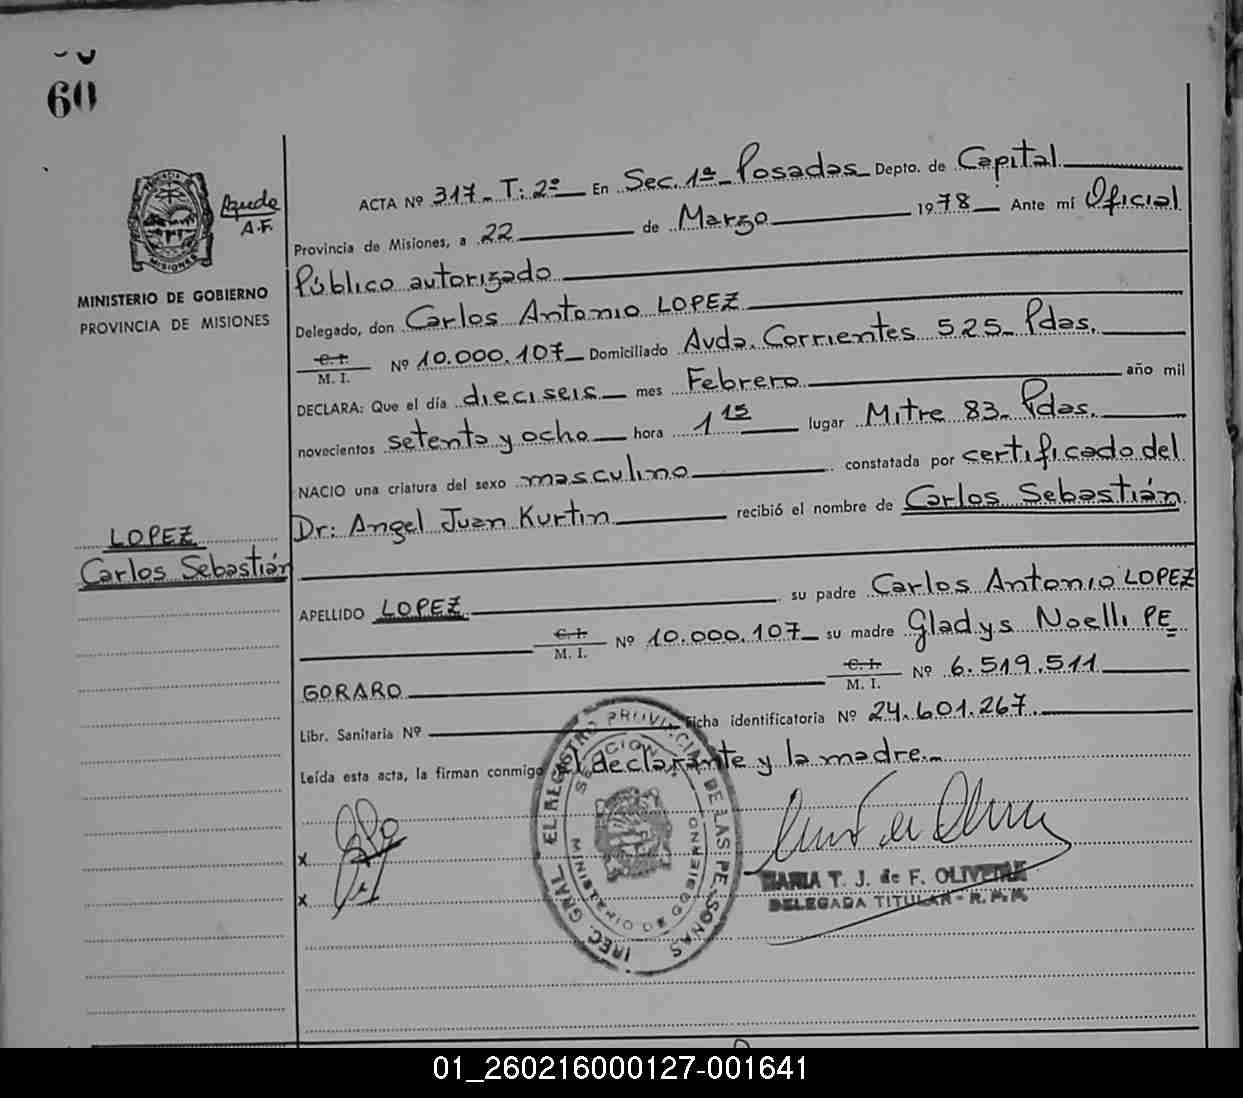 60
Ayudé
A.F.
MINISTERIO DE GOBIERNO
PROVINCIA DE MISIONES
ACTA Nº 317- T: 2º En Sec. 1ª Posadas Depto. de Capital
Provincia de Misiones, a 22 de Marzo 1978 Ante mí Oficial
Público autorizado
Delegado, don Carlos Antonio LOPEZ
C.I.
M. I. Nº 10.000.107 Domiciliado Avda. Corrientes 525- Pdas.
DECLARA: Que el día dieciseis mes Febrero año mil
novecientos setenta y ocho hora 1 15 lugar Mitre 83- Pdas.
NACIO una criatura del sexo masculino constatada por certificado del
Dr: Angel Juan Kurtin recibió el nombre de Carlos Sebastián
LOPEZ
Carlos Sebastián
APELLIDO LOPEZ su padre Carlos Antonio LOPEZ
C.I.
M. I. Nº 10.000.107 su madre Gladys Noelli PE
GORARO C.I.
M. I. Nº 6.519.511
Libr. Sanitaria Nº Ficha identificatoria Nº 24.601.267
Leída esta acta, la firman conmigo el declarante y la madre.
x
x
DIREC. GRAL. EL REGISTRO PROVINCIAL DE LAS PERSONAS
MINISTERIO DE GOBIERNO
MARIA T. J. de F. OLIVEIRA
DELEGADA TITULAR - R.P.P.
01_260216000127-001641